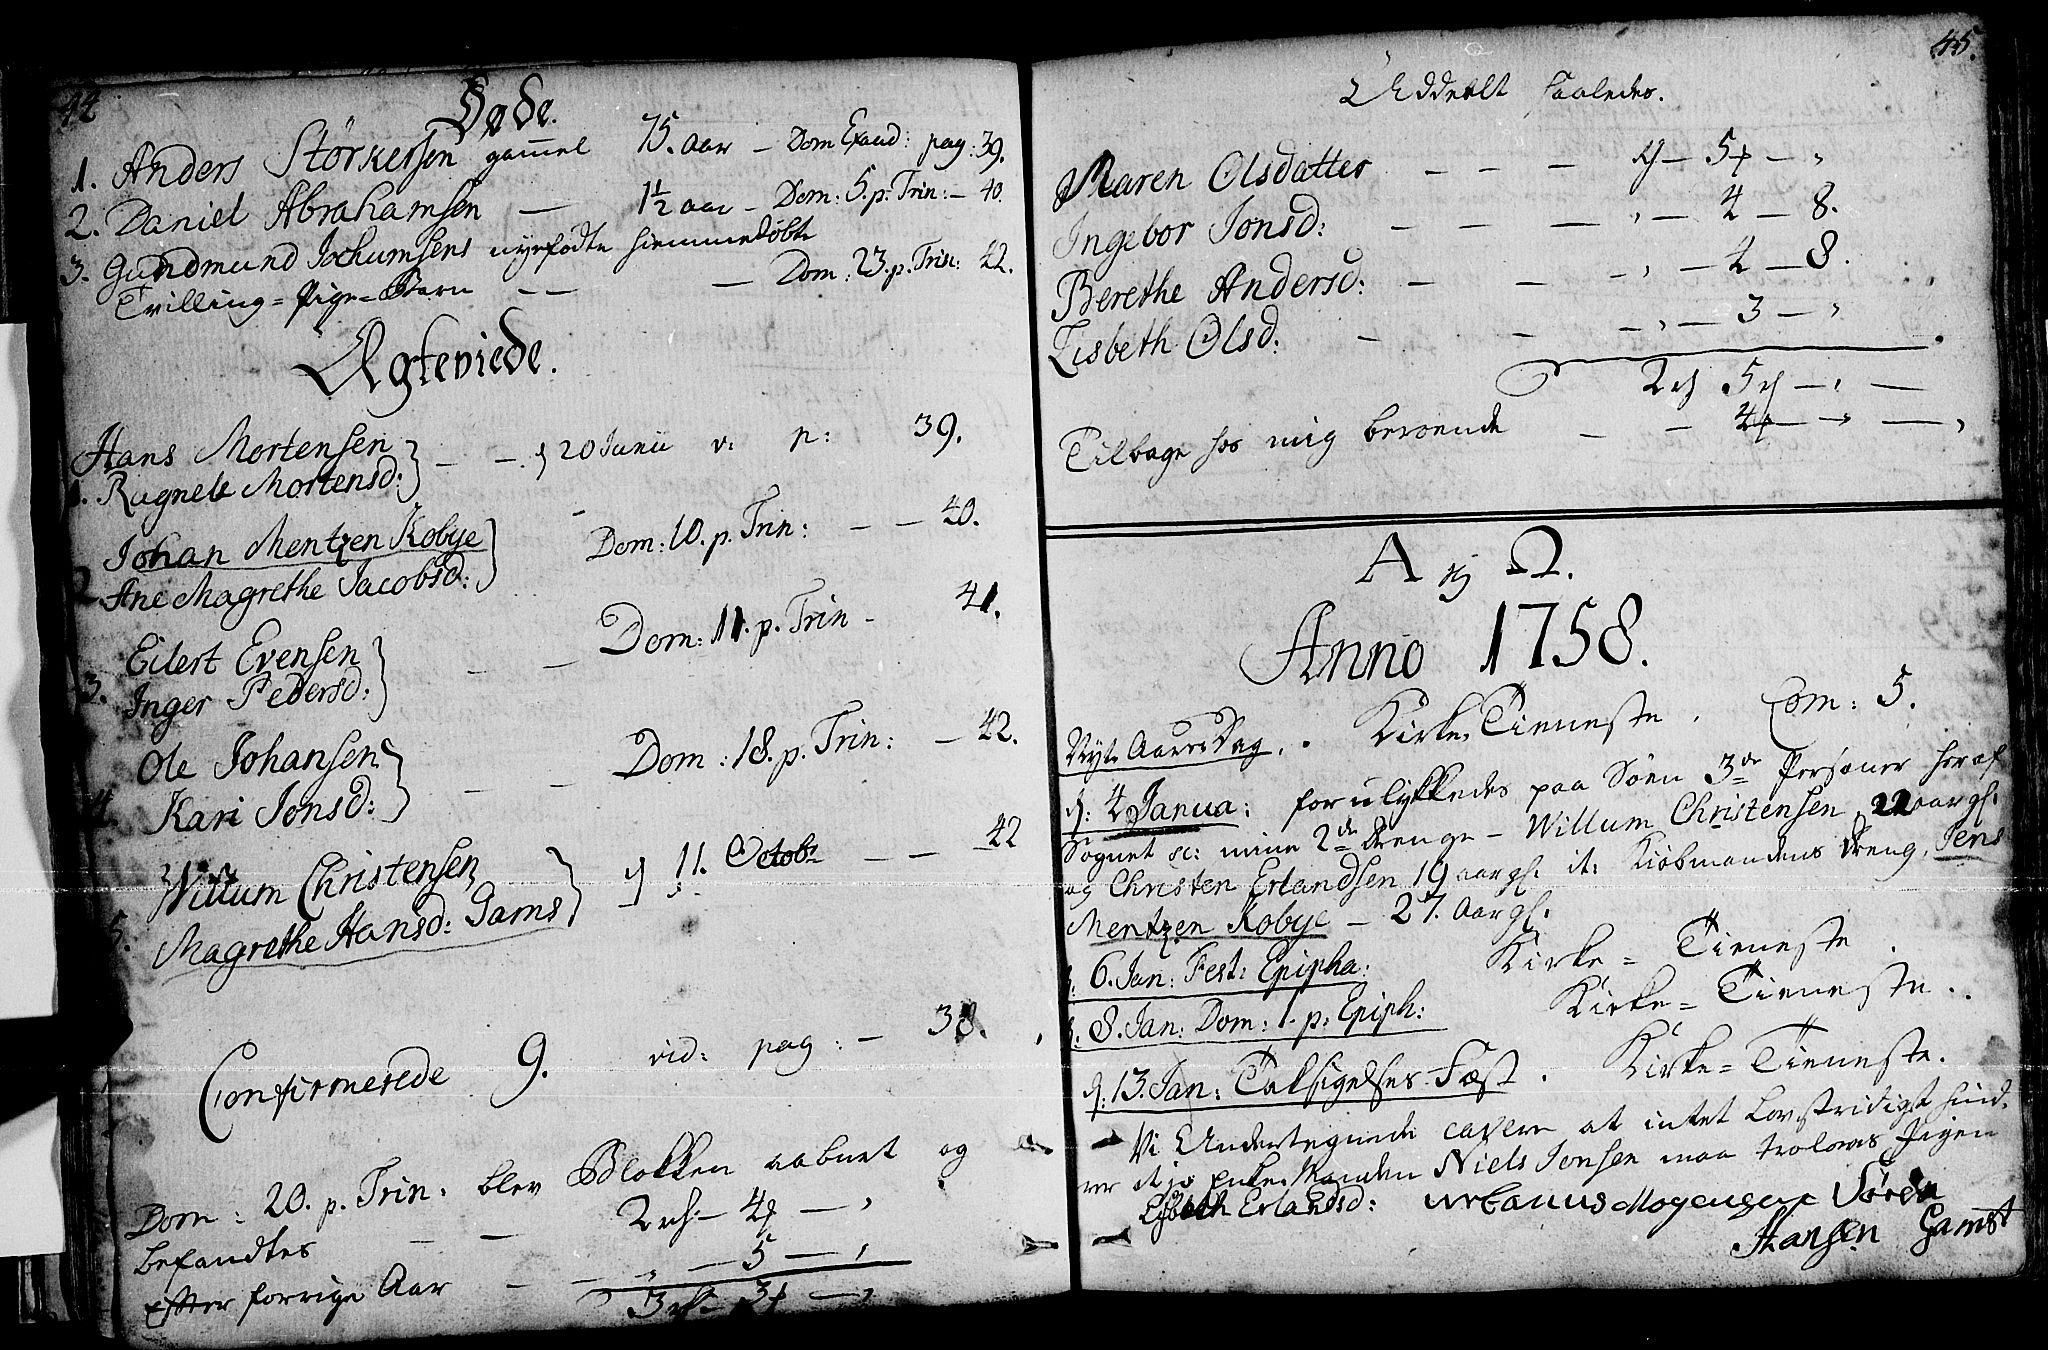 44
Døde.
1. Anders Störkersen gammel 75. aar – Dom Exaud: pag: 39.
2. Daniel Abrahamsen — 1½ aar – Dom: 5. p. Trin: – 40.
3. Gundmund Jochumsens nyefødte hiemmedøbte
Tvilling = Pige = Barn — — — Dom: 23. p. Trin: 42.
Ægteviede.
Hans Mortensen
1. Ragnele Mortensd: — — d 20 Junii v. p: 39.
Johan Mentzen Kobye
2. Ane Magrethe Jacobsd: Dom: 10. p. Trin: — — 40.
Eilert Evensen
3. Inger Pedersd: — — Dom: 11. p. Trin – 41.
Ole Johansen
4. Kari Jonsd: — — Dom: 18. p. Trin: — 42.
Willum Christensen
5. Magrethe Hansd: Gams d 11. Octobr — — 42
Confirmerede 9. vid: pag: — 38.
Dom: 20. p. Trin: blev Blokken aabnet og
befandtes — — 2 rd – 4 – ,
Efter forrige Aar — — „ — 5 — ,
3 rd – 3 — ,
45.
Uddeelt saaledes.
Maren Olsdatter — — — 5 — „
Ingebor Jonsd: — — — „ — 4 — 8.
Berethe Andersd: — — — „ — 4 — 8.
Lisbeth Olsd: — — — „ — 3 — „
2 rd 5 — „ —
Tilbage hos mig beroende — — 4 — „ — ,
A og Ω.
Anno 1758.
Nyt Aars Dag. . Kirke-Tieneste. Com: 5.
d: 4 Janua: forulykkedes paa Søen 3de Personer her af
Sognet sc: mine 2de Drenge – Willum Christensen 22 aar gl:
og Christen Erlandsen 19 aar gl. it: Kiøbmandens Dreng, Jens
Mentzen Kobye – 27. Aar gl.
d. 6. Jan: Fest: Epipha: Kirke = Tieneste.
d. 8. Jan: Dom: 1. p: Epiph: Kirke = Tieneste..
d: 13. Jan: Taksigelses-Fæst. Kirke = Tieneste.
Vi Undertegnede cavere at intet Lovstridigt hind-
rer at jo Enke-Manden Niels Jonsen maa troloves Pigen
Lisbeth Erlandsd: Urbanus Mogensen Sören
Hansen Gamst